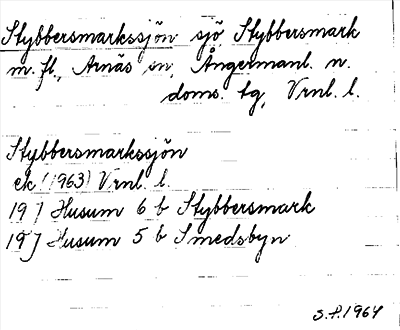 Stybbersmarkssjön sjö Stybbersmark
m. fl., Arnäs sn, Ångermanl. n.
doms. tg, Vrnl. l.
Stybbersmarkssjön
ek (1963) Vrnl. l.
19 J Husum 6 b Stybbersmark
19 J Husum 5 b Smedsbyn
S.P. 1964